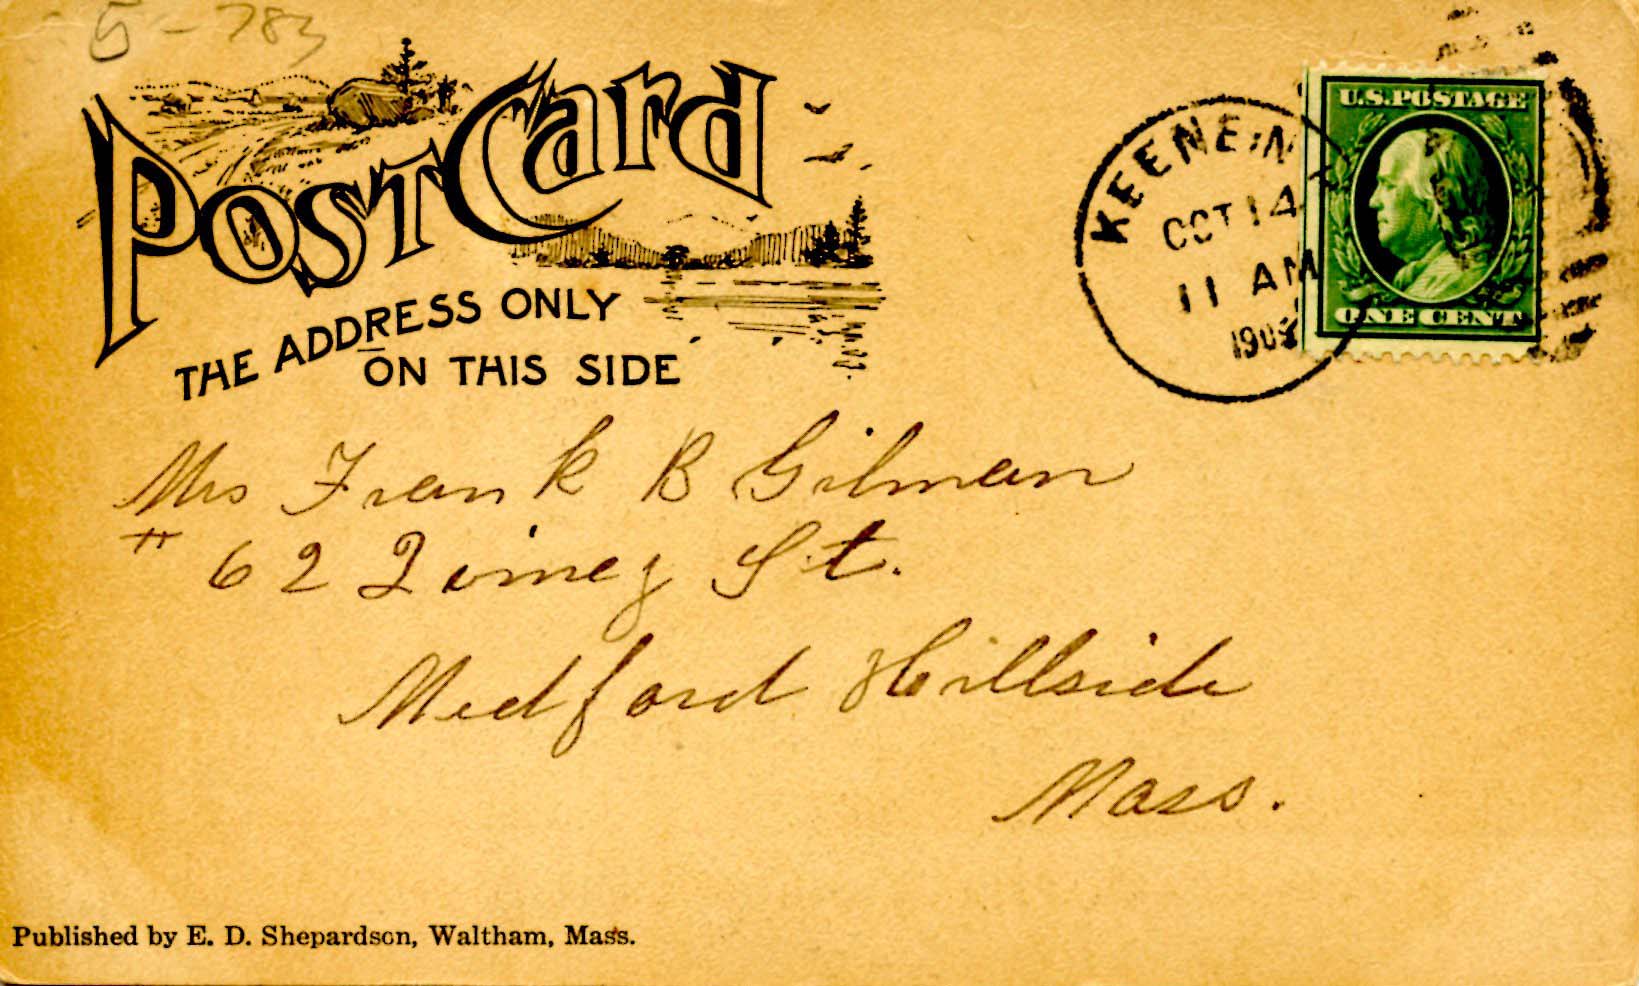 5-783
POST CARD
THE ADDRESS ONLY
ON THIS SIDE
KEENE, N
OCT 14
11 AM
1909
U.S. POSTAGE
ONE CENT
Mrs Frank B Gilman
# 62 Quincy St.
Medford Hillside
Mass.
Published by E. D. Shepardson, Waltham, Mass.